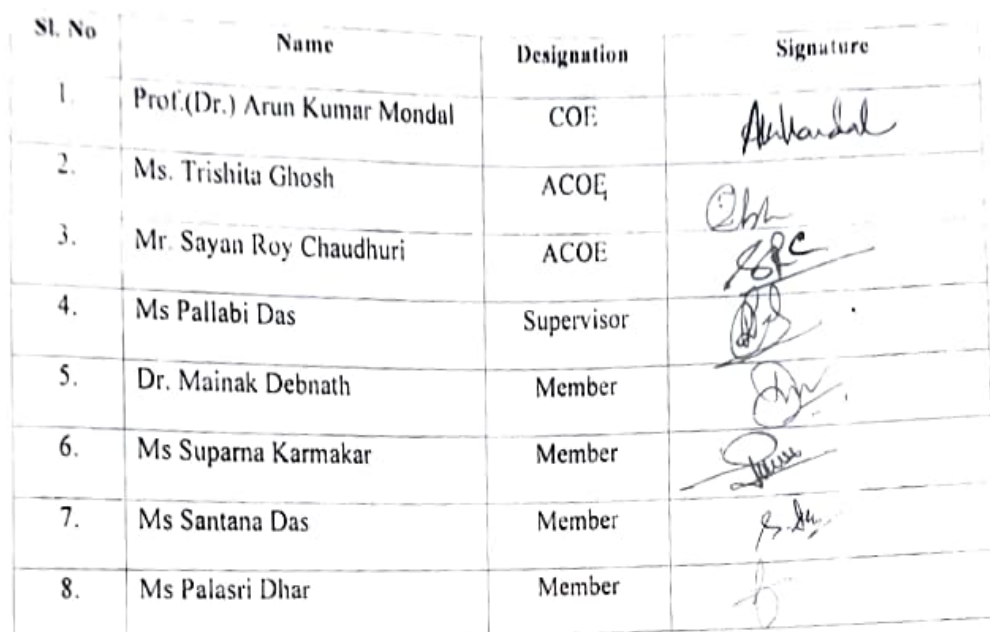 Sl. No Name Designation Signature
1. Prof.(Dr.) Arun Kumar Mondal COE AkMandal
2. Ms. Trishita Ghosh ACOE
3. Mr. Sayan Roy Chaudhuri ACOE SRC
4. Ms Pallabi Das Supervisor
5. Dr. Mainak Debnath Member
6. Ms Suparna Karmakar Member
7. Ms Santana Das Member S. Das
8. Ms Palasri Dhar Member